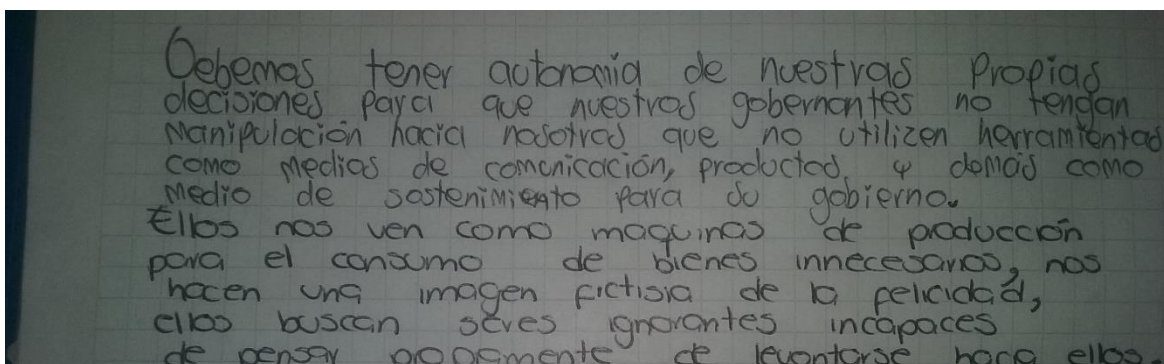 Debemos tener autonomia de nuestras propias
decisiones para que nuestros gobernantes no tengan
manipulación hacia nosotros que no utilizen herramientas
como medios de comunicación, productos, y demás como
medio de sostenimiento para su gobierno.
Ellos nos ven como maquinas de producción
para el consumo de bienes innecesarios, nos
hacen una imagen fictisia de la felicidad,
ellos buscan seres ignorantes incapaces
de pensar de levantarse hacia ellos.